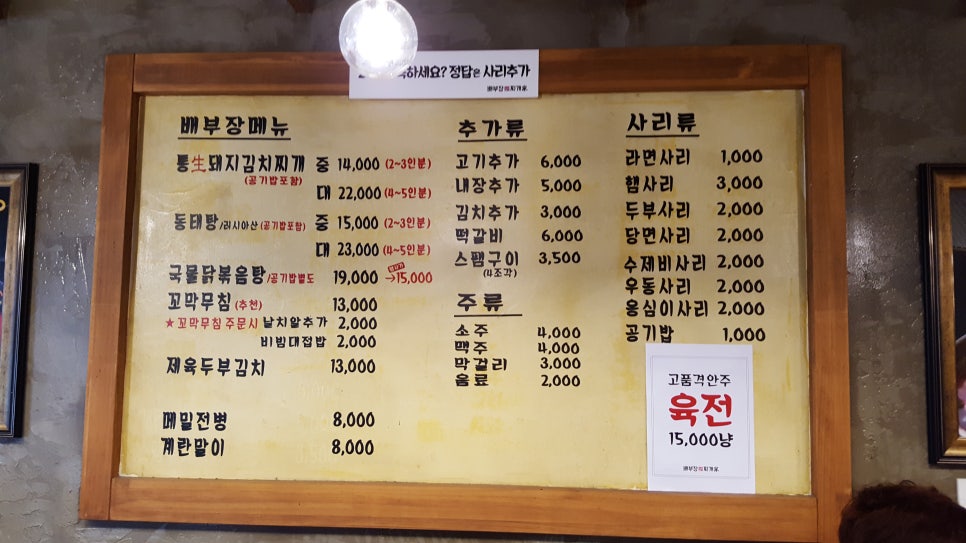 하세요? 정답은 사리추가
배부장찌개家
배부장메뉴
통生돼지김치찌개 중 14,000 (2~3인분)
(공기밥포함)
대 22,000 (4~5인분)
동태탕/러시아산 (공기밥포함) 중 15,000 (2~3인분)
대 23,000 (4~5인분)
국물닭볶음탕/공기밥별도 19,000 →15,000
꼬막무침 (추천) 13,000
★꼬막무침 주문시 날치알추가 2,000
비빔대접밥 2,000
제육두부김치 13,000
메밀전병 8,000
계란말이 8,000
추가류
고기추가 6,000
내장추가 5,000
김치추가 3,000
떡갈비 6,000
스팸구이 3,500
(4조각)
주류
소주 4,000
맥주 4,000
막걸리 3,000
음료 2,000
사리류
라면사리 1,000
햄사리 3,000
두부사리 2,000
당면사리 2,000
수제비사리 2,000
우동사리 2,000
옹심이사리 2,000
공기밥 1,000
고품격안주
육전
15,000냥
배부장찌개家